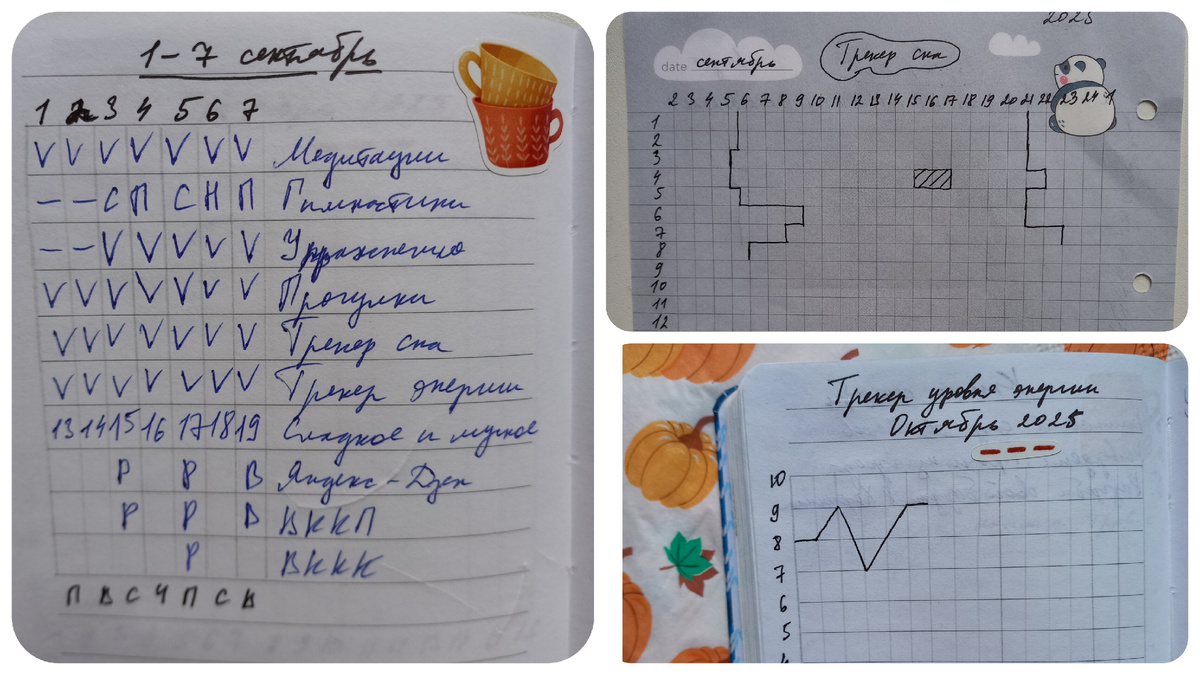 1-7 сентябрь
1 2 3 4 5 6 7
V V V V V V V Медитации
— — С П С Н П Гимнастики
— — V V V V V Упражнения
V V V V V V V Прогулки
V V V V V V V Трекер сна
V V V V V V V Трекер энергии
13 14 15 16 17 18 19 Сладкое и мучное
Р Р В Яндекс-Дзен
Р Р В ВККП
Р ВККК
П В С Ч П С В
2025
date сентябрь
Трекер сна
2 3 4 5 6 7 8 9 10 11 12 13 14 15 16 17 18 19 20 21 22 23 24 1
1
2
3
4
5
6
7
8
9
10
11
12
Трекер уровня энергии
Октябрь 2025
10
9
8
7
6
5
4